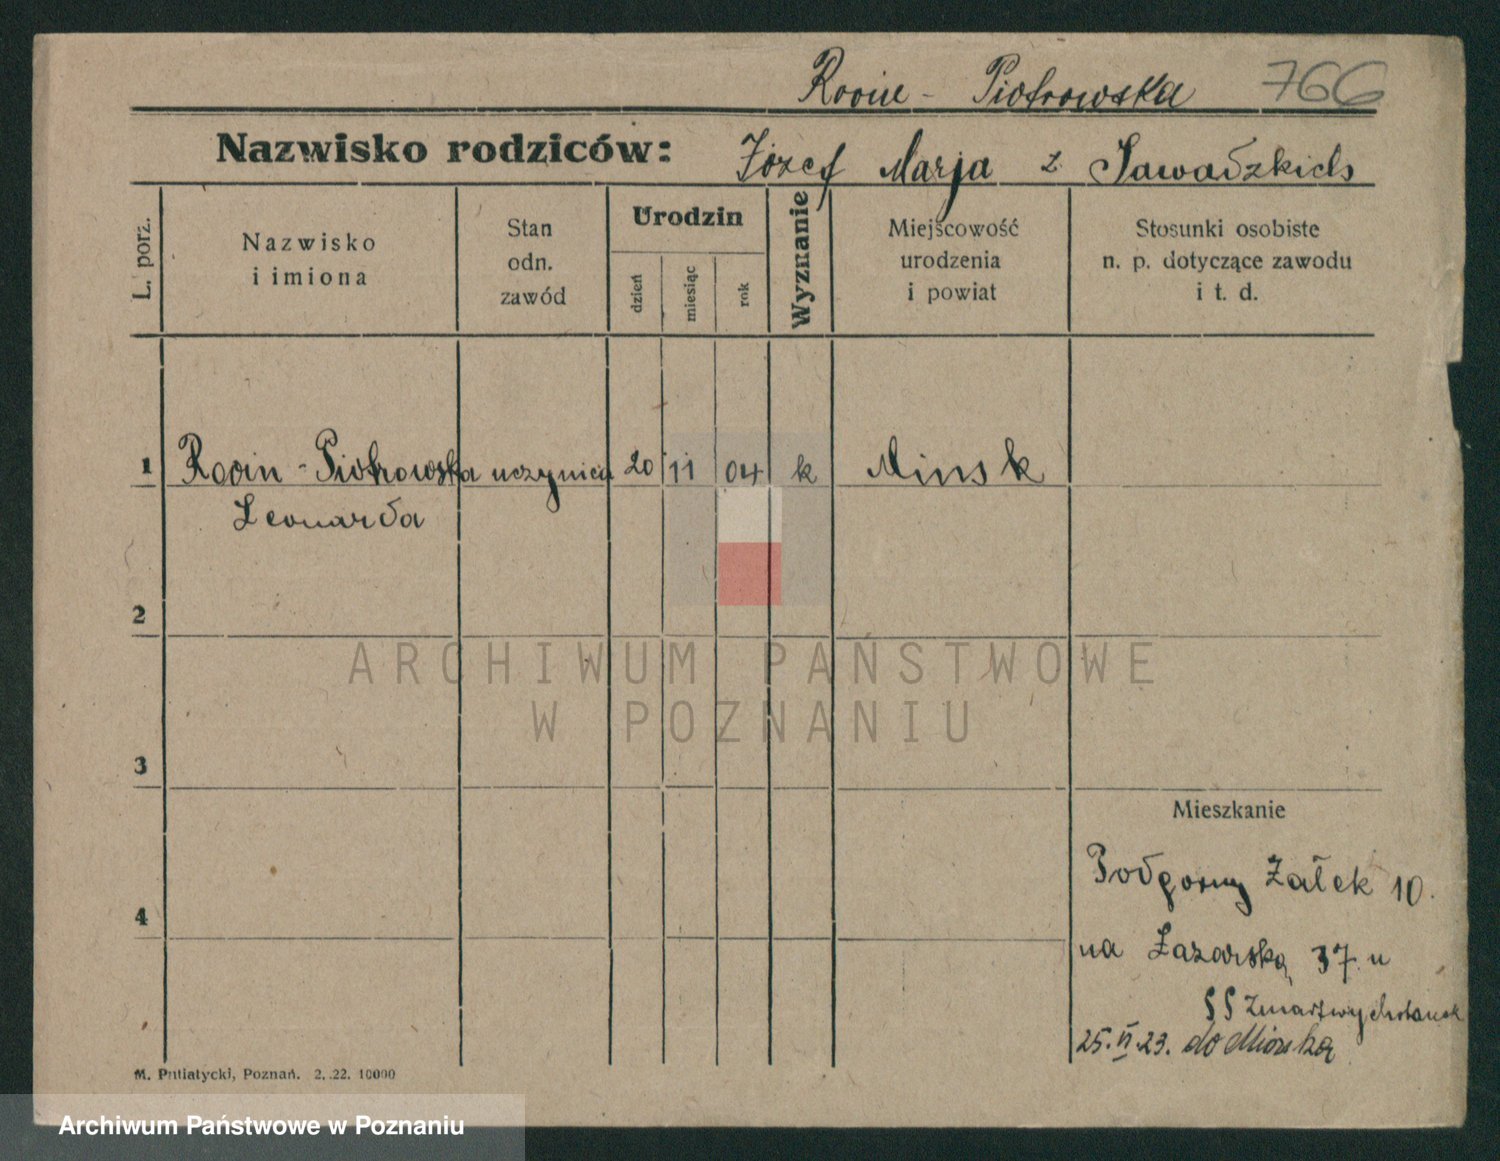 Rovin - Piotrowska 766
Nazwisko rodziców: Józef Marja z Zawadzkich
L. porz.
Nazwisko
i imiona
Stan
odn.
zawód
Urodzin
dzień
miesiąc
rok
Wyznanie
Miejscowość
urodzenia
i powiat
Stosunki osobiste
n. p. dotyczące zawodu
i t. d.
1 Rovin - Piotrowska uczynica 20 11 04 k Minsk
Leonarda
2
ARCHIWUM PAŃSTWOWE
W POZNANIU
3
Mieszkanie
Podgorny Załek 10.
4
na Łazarską 37 u
SS Zmartwychstanek
25. VI. 23. do
M. Putiatycki, Poznań. 2. .22. 10000
Archiwum Państwowe w Poznaniu